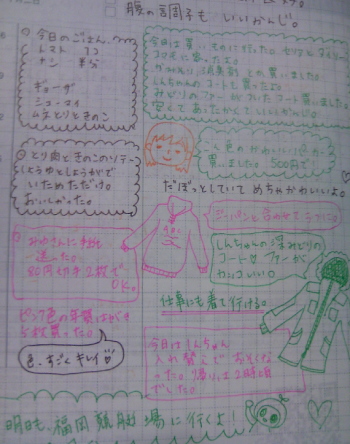 腹の調子も いいかんじ。
今日のごはん
トマト 1コ
ナン 半分
ギョーザ
シューマイ
ムネとりときのこ
とり肉ときのこのソテー
しょうゆとしょうがで
いためただけ。
おいしかった。
みゆさんに手紙
送った。
80円切手2枚で
OK。
ピンク色の年賀はがき
5枚買った。
色、すごくキレイ♡
今日は買いものに行った。セリアとダイソー
しんちゃんのコートも買ったよ。
みどりのファーがついたコート買いました。
安くてあったかくていいかんじ。
買いました。500円で
だぼっとしていて めちゃかわいいよ。
ジーパンと合わせるつもり。
しんちゃんの深みどりの
コート♡ ファーが
カッコいい。
仕事にも着て行ける。
今日はしんちゃん
入れ替えで おそくなっ
た。帰りは2時頃
でした。
明日も、福岡競艇場に行くよ!